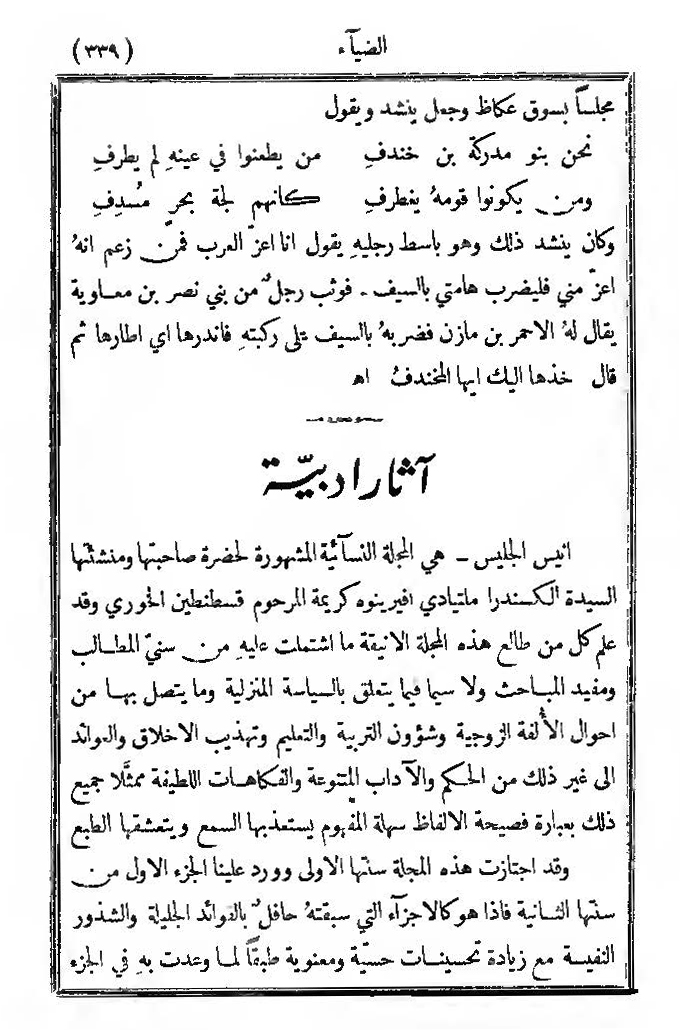 الضيآء
(٣٣٩)
مجلساً بسوق عكاظ وجعل ينشد ويقول
نحن بنو مدركة بن خندفِ من يطعنوا في عينهِ لم يطرفِ
ومن يكونوا قومهُ يغطرفِ كانهم لجة بحرٍ مُسدِفِ
وكان ينشد ذلك وهو باسط رجليهِ يقول انا اعزّ العرب فمن زعم انهُ
اعزّ مني فليضرب هامتي بالسيف . فوثب رجلٌ من بني نصر بن معاوية
يقال لهُ الاحمر بن مازن فضربهُ بالسيف على ركبتهِ فاندرها اي اطارها ثم
قال خذها اليك ايها المخندفُ اه
آثار ادبيّة
انيس الجليس – هي المجلة النسآئية المشهورة لحضرة صاحبتها ومنشئتها
السيدة الكسندرا ملتيادي افيرينوه كريمة المرحوم قسطنطين الخوري وقد
علم كل من طالع هذه المجلة الانيقة ما اشتملت عليهِ من سنيّ المطالب
ومفيد المباحث ولا سيما فيما يتعلق بالسياسة المنزلية وما يتصل بها من
احوال الأُلفة الزوجية وشؤون التربية والتعليم وتهذيب الاخلاق والعوائد
الى غير ذلك من الحكم والآداب المتنوعة والفكاهات اللطيفة ممثَّلا جميع
ذلك بعبارة فصيحة الالفاظ سهلة المفهوم يستعذبها السمع ويتعشقها الطبع
وقد اجتازت هذه المجلة سنتها الاولى وورد علينا الجزء الاول من
سنتها الثانية فاذا هو كالاجزآء التي سبقتهُ حافلٌ بالفوائد الجليلة والشذور
النفيسة مع زيادة تحسينات حسيّة ومعنوية طبقاً لما وعدت بهِ في الجزء